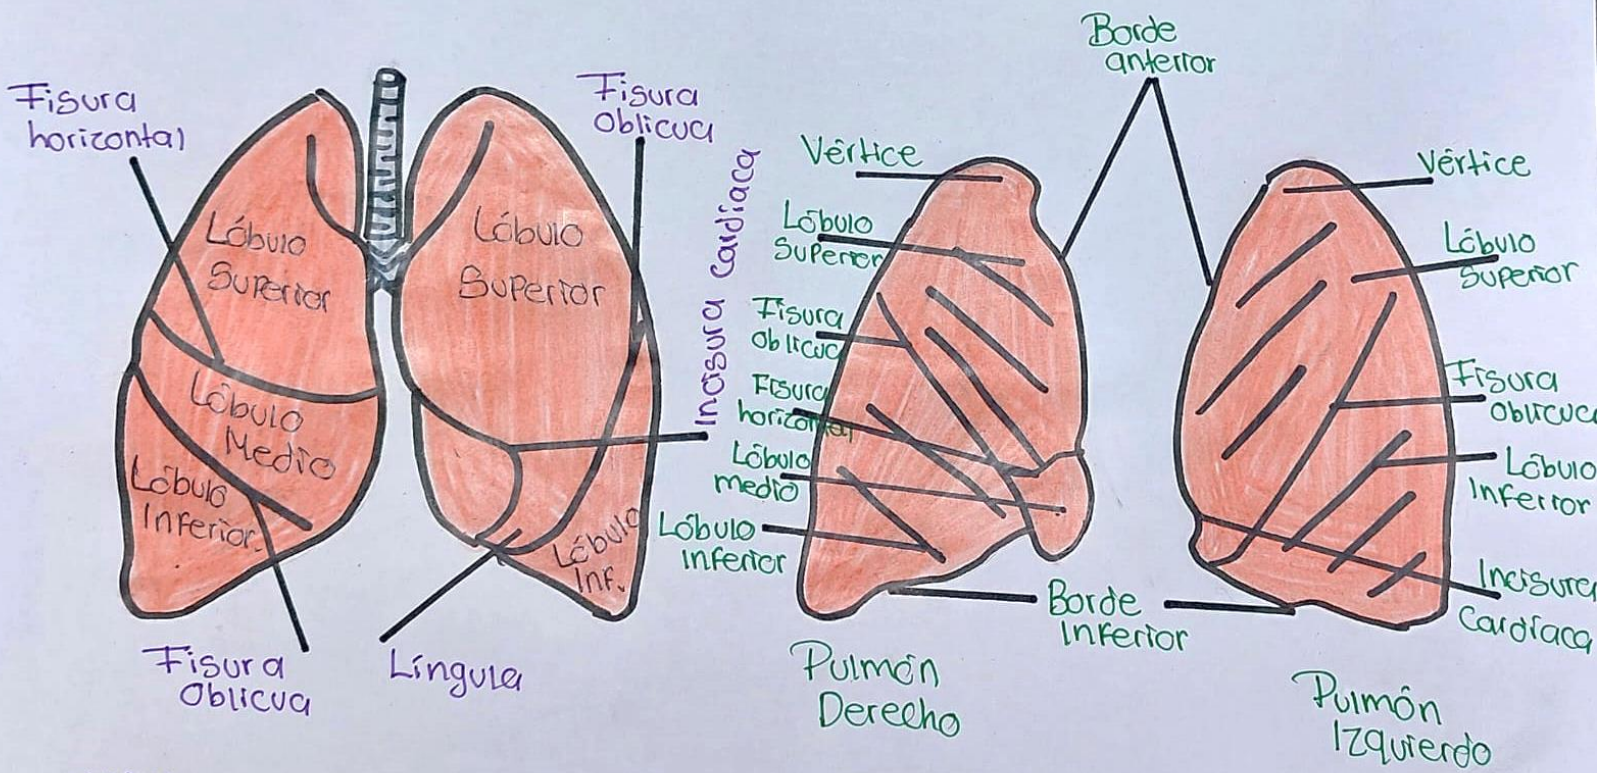 Fisura
horizontal
Lóbulo
Superior
Lóbulo
Medio
Lóbulo
Inferior.
Fisura
Oblicua
Fisura
Oblicua
Lóbulo
Superior
Incisura Cardíaca
Lóbulo
Inf.
Língula
Borde
anterior
Vértice
Lóbulo
Superior
Fisura
Oblicua
Fisura
horizontal
Lóbulo
medio
Lóbulo
inferior
Borde
inferior
Pulmón
Derecho
Vértice
Lóbulo
Superior
Fisura
Oblicua
Lóbulo
Inferior
Incisura
Cardíaca
Pulmón
Izquierdo